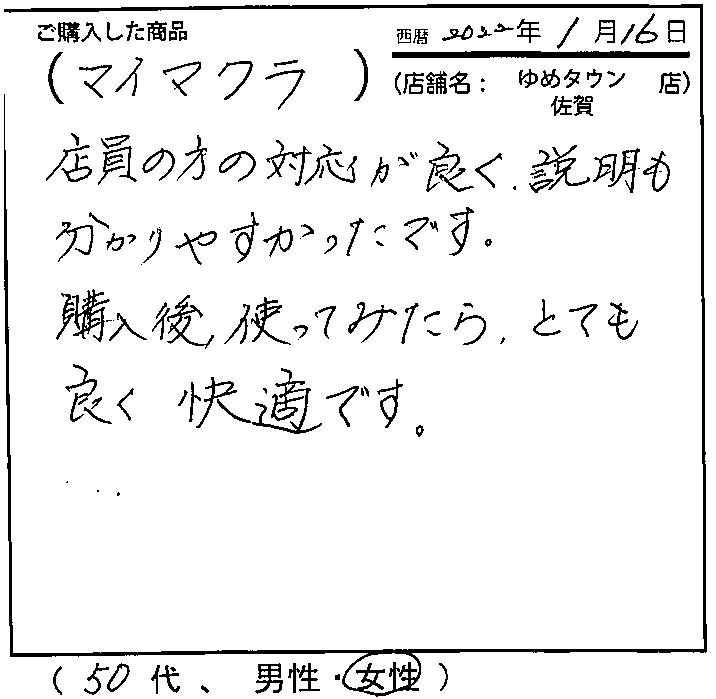 ご購入した商品
西暦 2022年 1月16日
(マイマクラ)
(店舗名： ゆめタウン 佐賀 店)
店員の方の対応が良く、説明も
分かりやすかったです。
購入後、使ってみたら、とても
良く 快適です。
(50代、男性・女性)